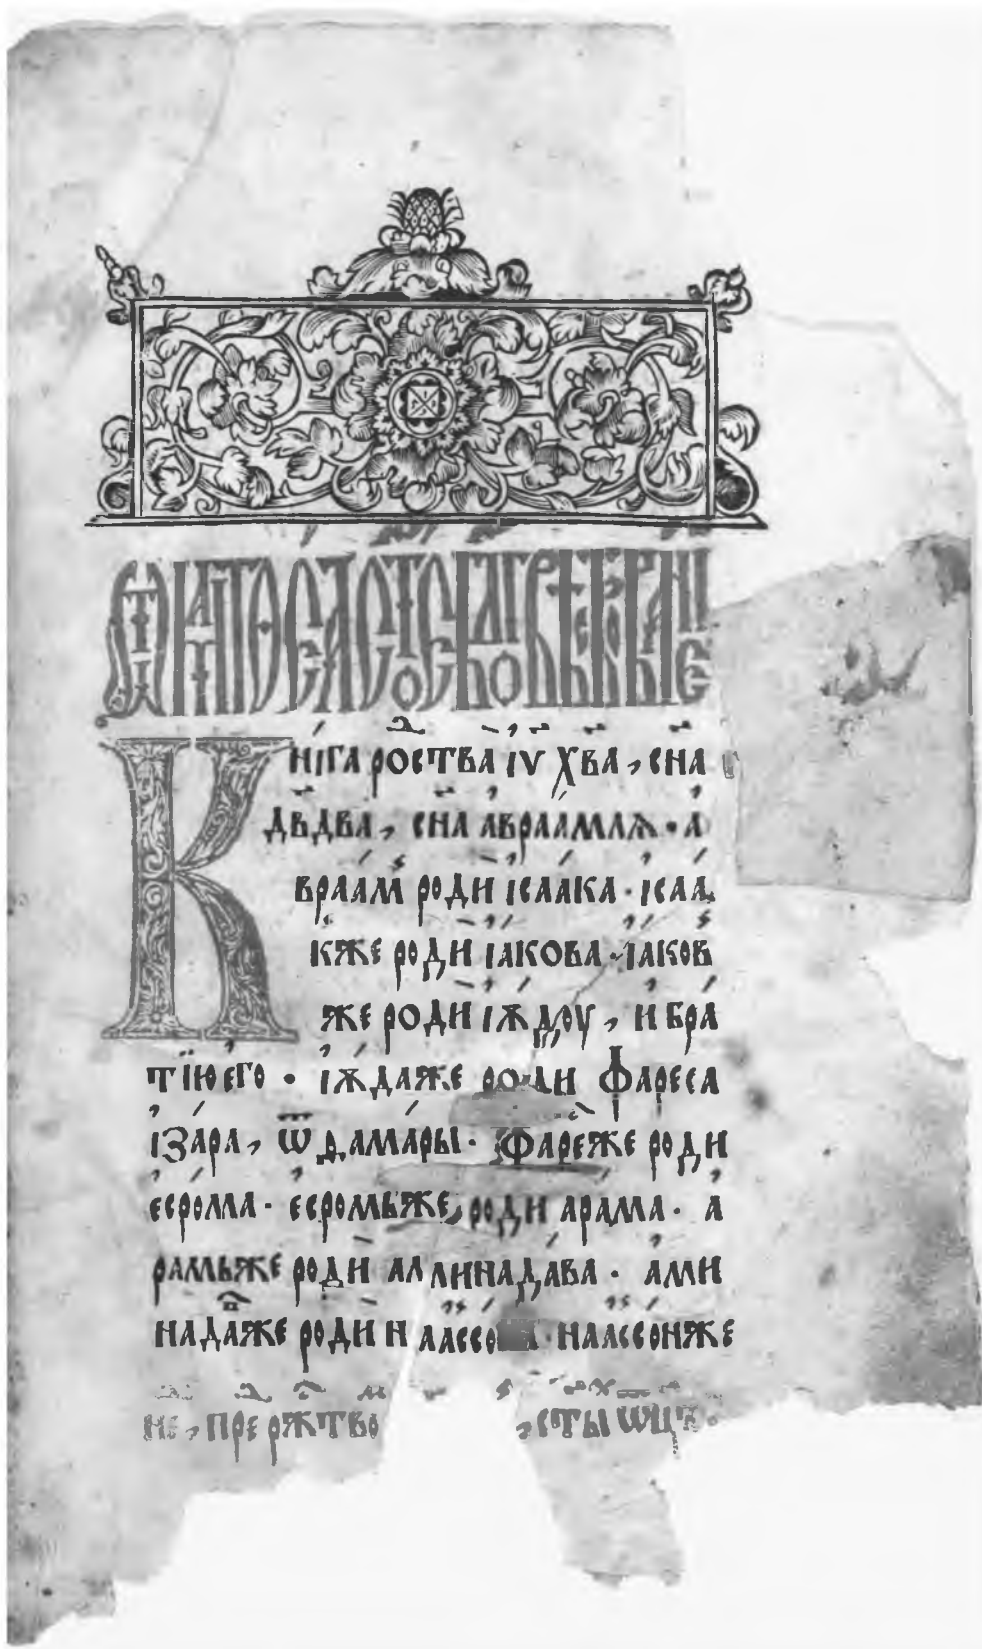 Кни́га роⷤства і҆ѵ҃ хв҃а, сн҃а
дв҃два, сн҃а а҆враа́млѧ · а҆
враа́мꙿ роди̑ і҆саа́ка · і҆саа́
кже роди̑ і҆а́кова · і҆а́ковꙿ
же роди̑ і҆ю́дꙋ, и҆ бра́
тїю є҆го · і҆ю́даже роди̑ фареса
і҆за́ра, ѿ ѳ҆ама́ры · фареⷭ҇же роди
есро́ма · есро́мьже роди а҆ра́ма · а҆
рамьже роди̑ аминада́ва · а҆ми
нада́ⷡже роди̑ наассо́на · наассо́нже
не, преⷣ рⷭ҇жтвоⷨ ст҃ыⷯ ѿц҃ъ ·